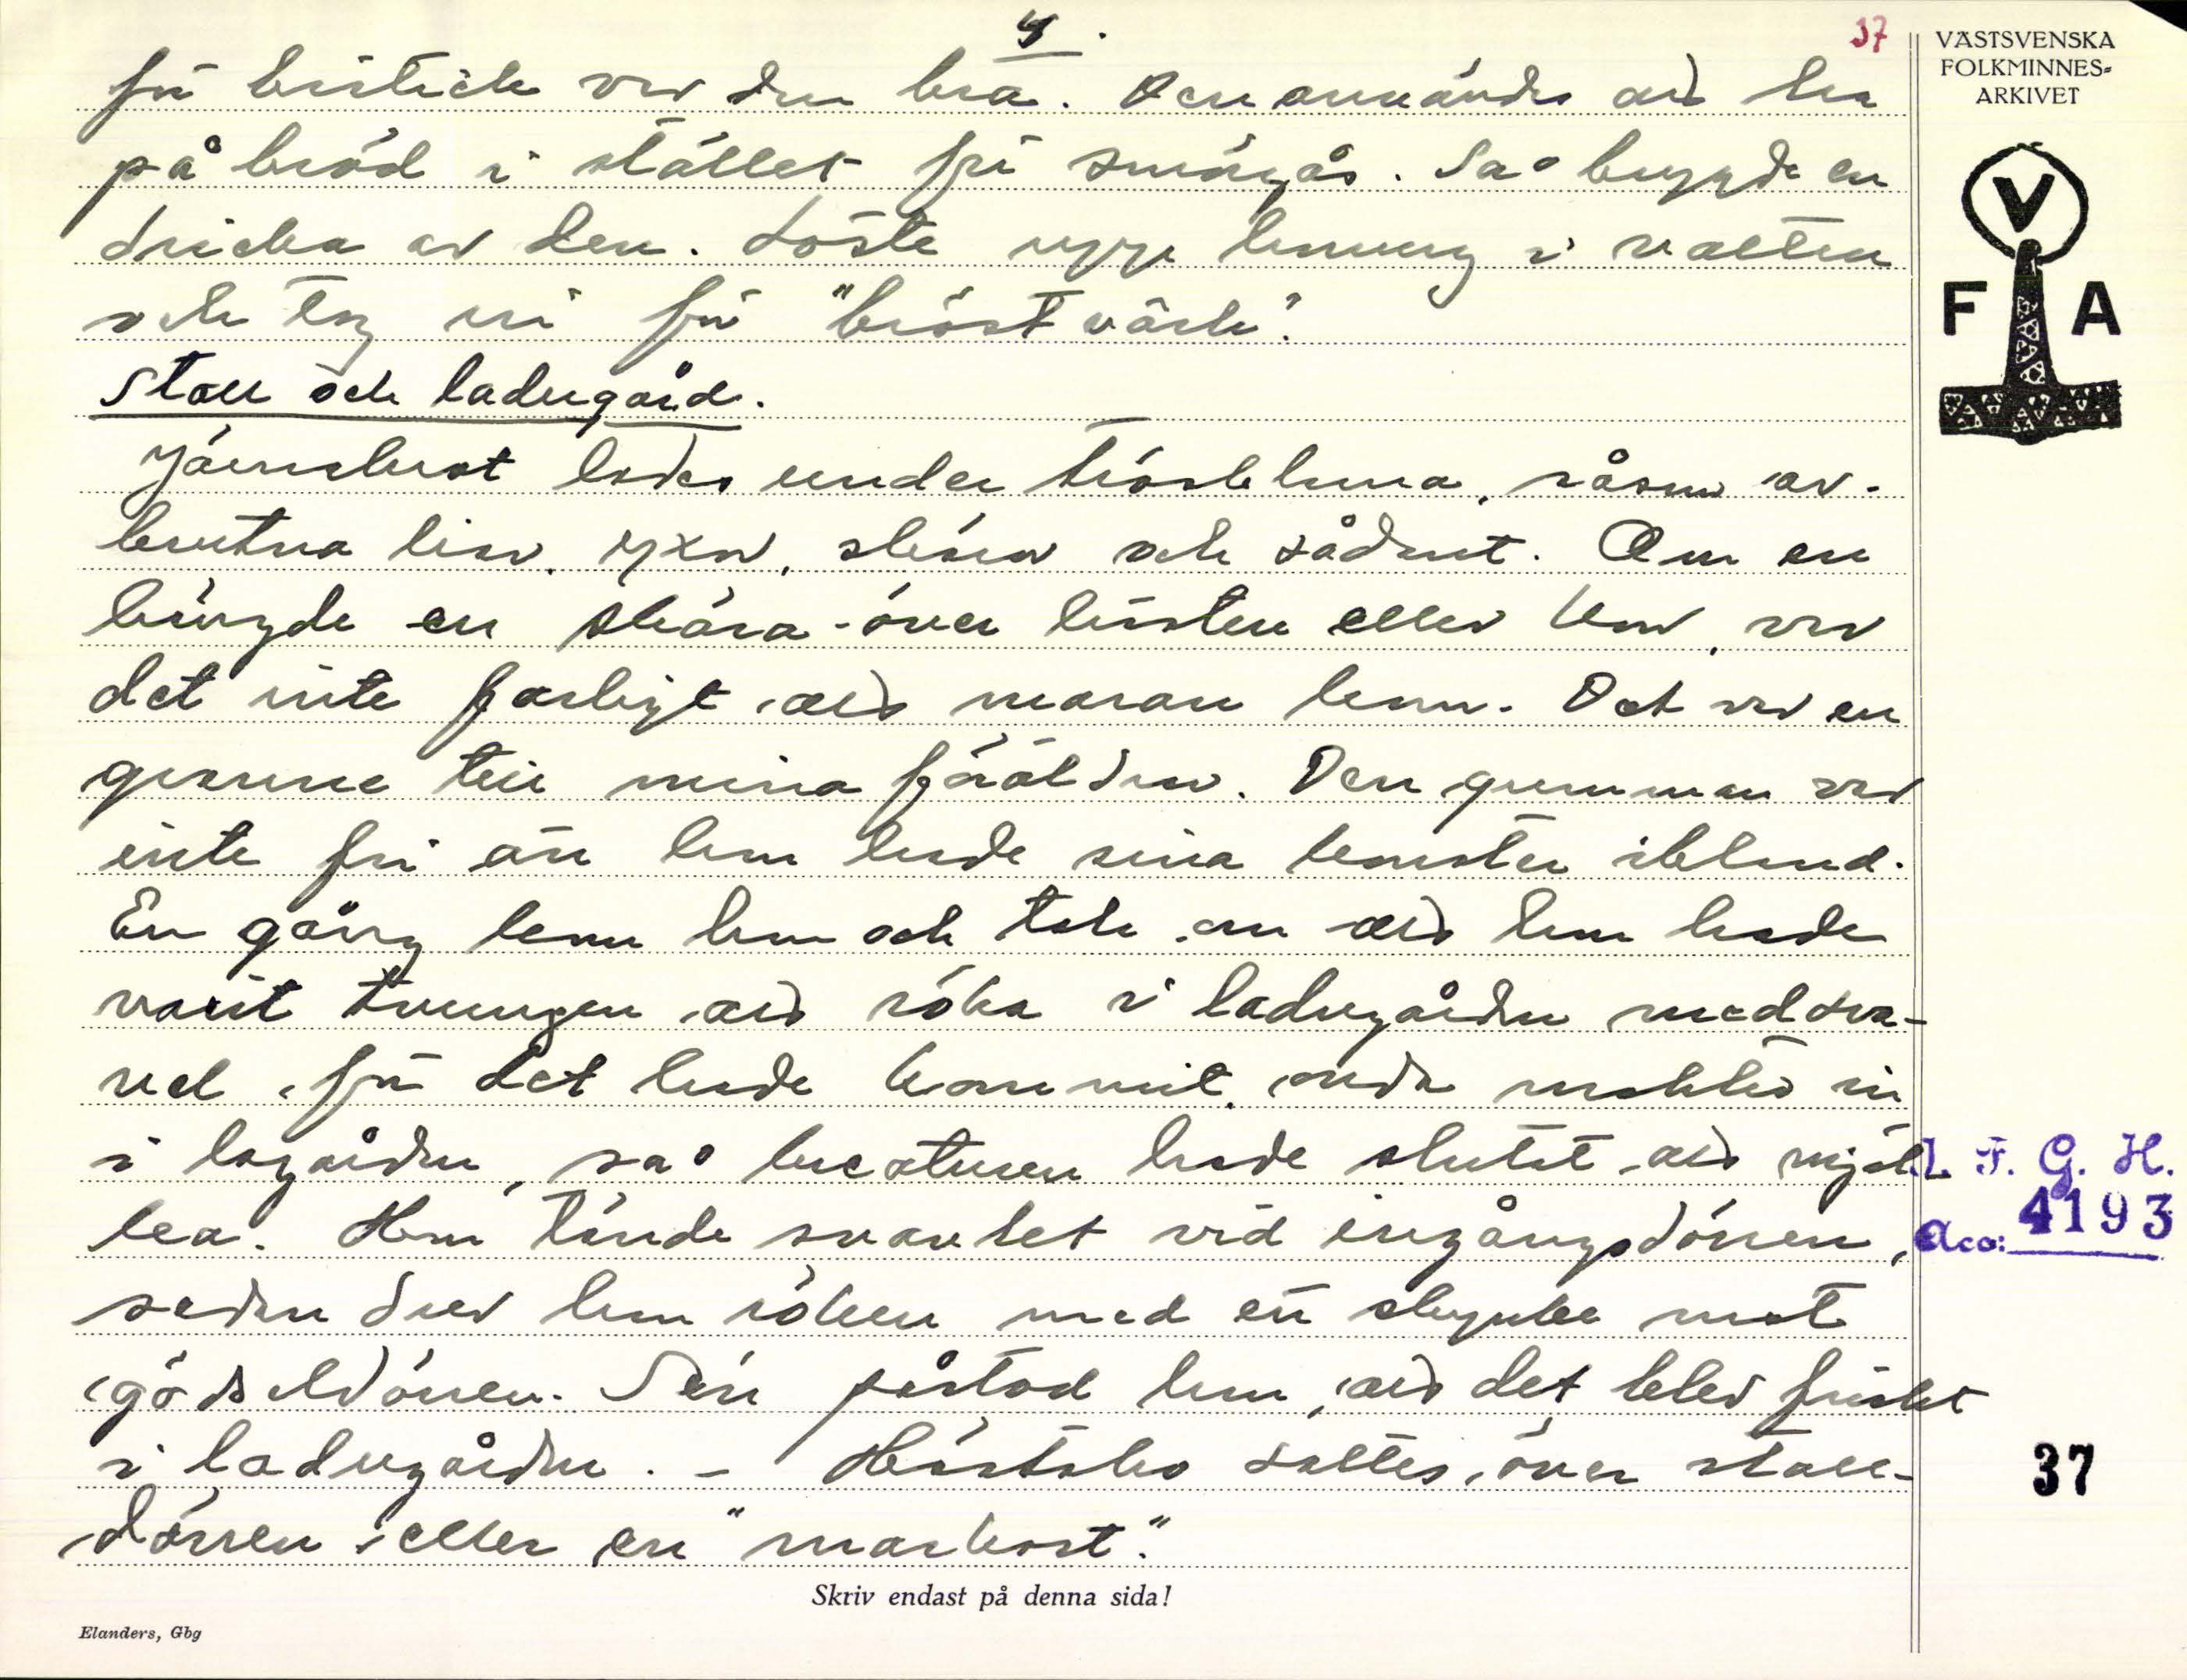 4.
37
för bistick var den bra. Den användes att ha
på bröd i stället för smörgås. Sa° bryggde en
dricka av den. Löste upp honung i vatten
och tog in för "bröstvärk".
Stall och ladugård.
Järnskrot lades under trösklarna, såsom av-
brutna liar, yxor, skäror och sådant. Om en
hängde en skära över hästen eller kor, var
det inte farligt att maran kom. Det var en
granne till mina föräldrar. Den gumman var
inte fri än hon hade sina konster ibland.
En gång kom hon och tala om att hon hade
varit tvungen att röka i ladugården med sva-
vel, för det hade kommit onda makter in
i lagården, sa° kreaturen hade slutat att mjöl-
ka. Hon tände svavlet vid ingångsdörren,
sedan drev hon röken med ett skynke mot
gödseldörren. Sen påstod hon, att det blev friskt
i ladugården. - Hästsko sattes över stall-
dörren eller en "markvast".
Skriv endast på denna sida!
Elanders, Gbg
VÄSTSVENSKA
FOLKMINNES-
ARKIVET
V
F A
I. F. G. H.
Acc: 4193
37